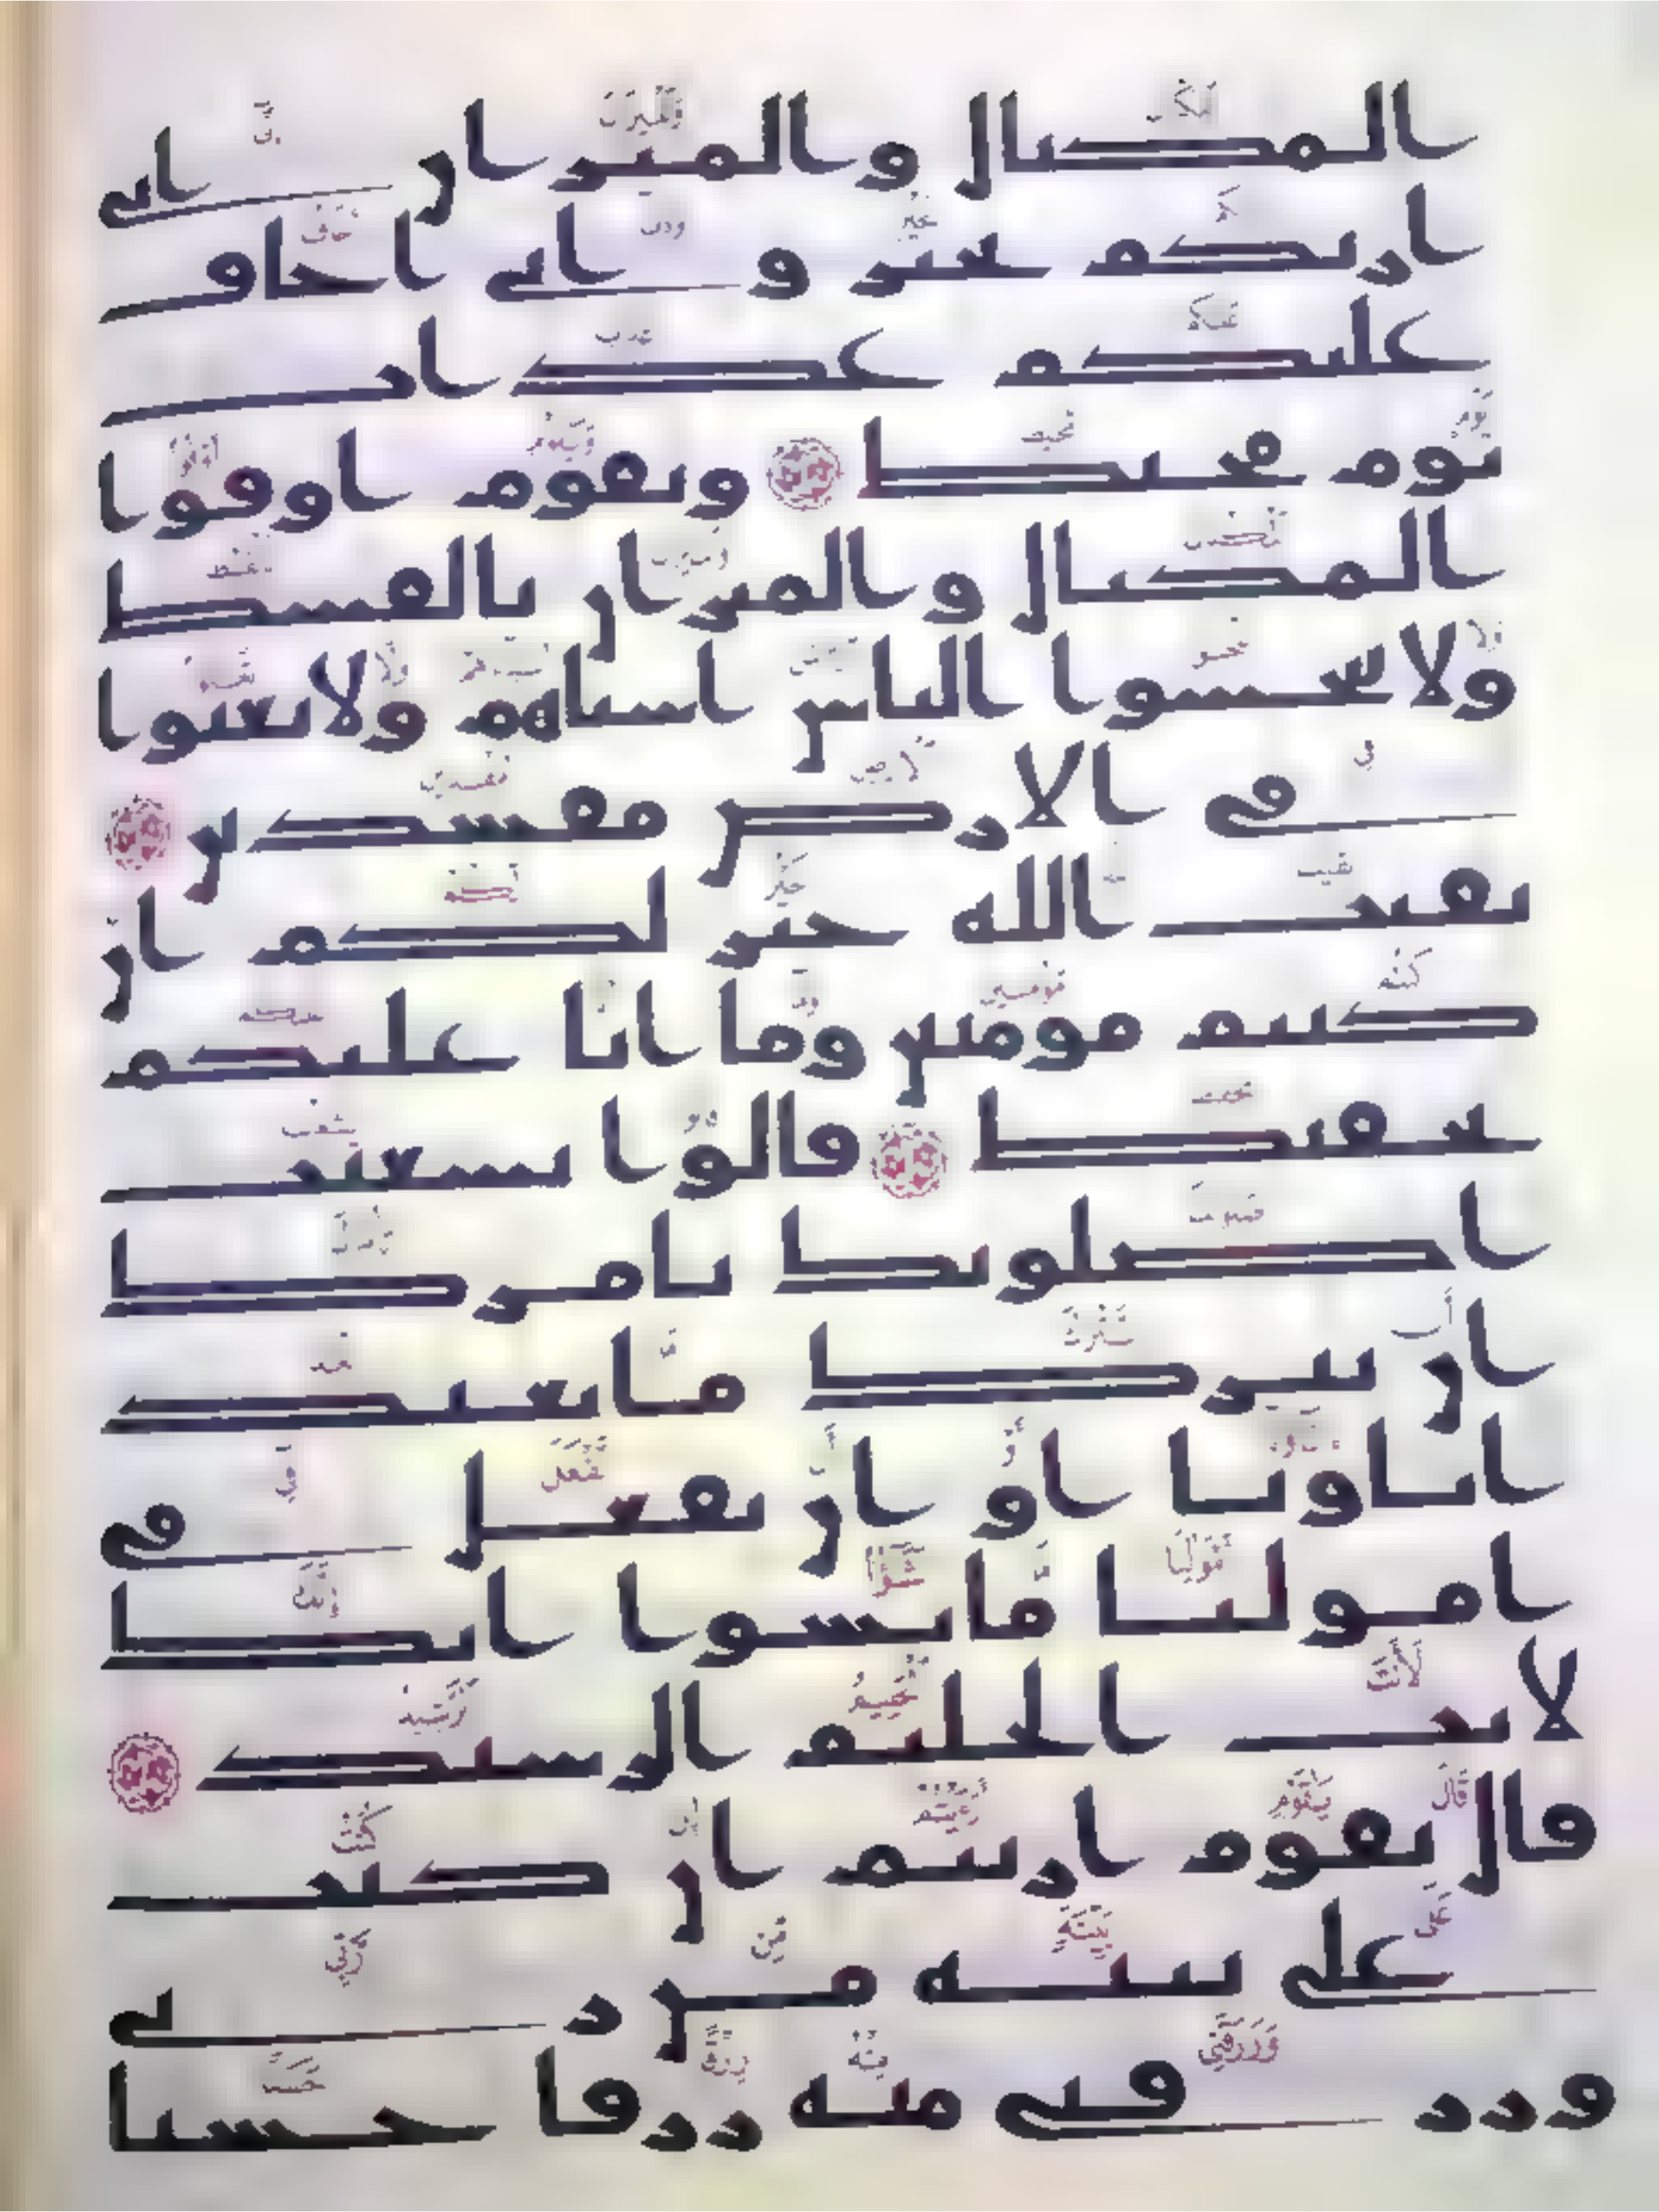 المكيال والميزان إني
أريكم بخير وإني أخاف
عليكم عذاب
يوم محيط ويقوم أوفوا
المكيال والميزان بالقسط
ولا تبخسوا الناس أشياهم ولا تعثوا
في الأرض مفسدين
بقيت الله خير لكم إن
كنتم مومنين وما أنا عليكم
بحفيظ قالوا يشعيب
أصلوتك تأمرك
أن نترك ما يعبد
اباونا أو أن نفعل في
أمولنا ما نشوا إنك
لانت الحليم الرشيد
قال يقوم أريتم إن كنت
على بينة من ربي
ورزقني منه رزقا حسنا